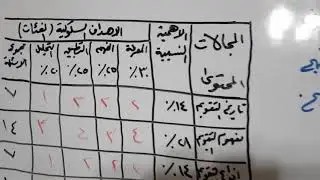 المجالات
المحتوى
الاهمية النسبية
الاهداف السلوكية (الفئات)
المعرفة ٣٠٪ الفهم ٢٥٪ التطبيق ٢٥٪ التحليل ٢٠٪
مجموع الاسئلة
تاريخ التقويم ١٤٪ ٢ ٢ ٢ ١ ٧
مفهوم التقويم ٢٨٪ ٤ ٣ ٣ ١٤
التقويم ١٤٪ ٢ ٢ ٧